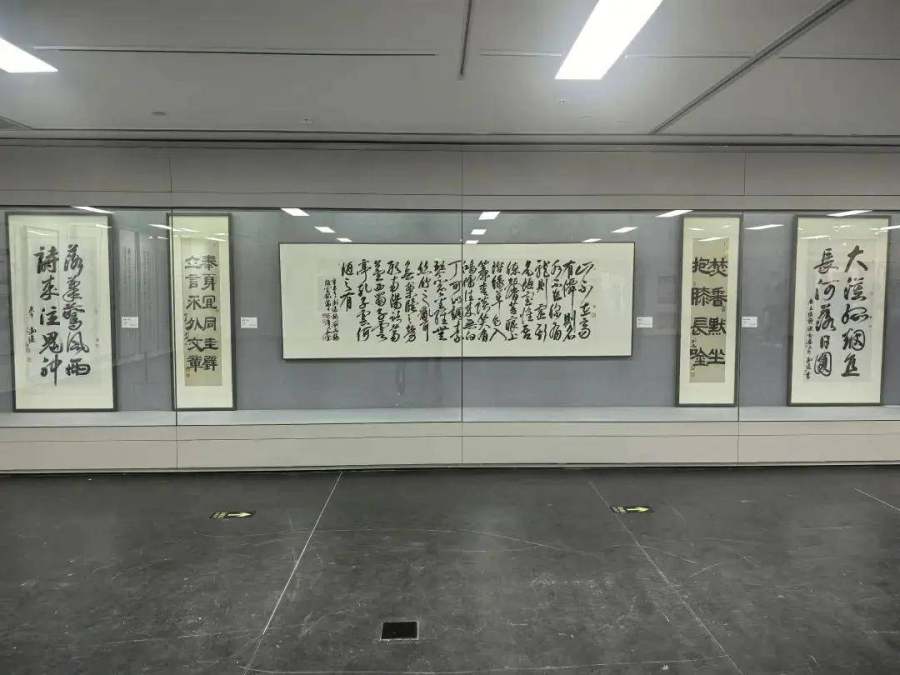 落筆驚風雨
詩來泣鬼神
奉身宜同圭璧
立言永以文章
山不在高
有僊則名
水不在深
有龍則靈
斯是陋室惟吾
德馨苔痕上
階綠草色入
簾青談笑有
鴻儒往來無白
丁可以調素
琴閱金經無
絲竹之亂耳
無案牘之勞
形南陽諸葛
廬西蜀子雲
亭孔子云何
陋之有
焚香默坐
抱膝長吟
大漠孤烟直
長河落日圓